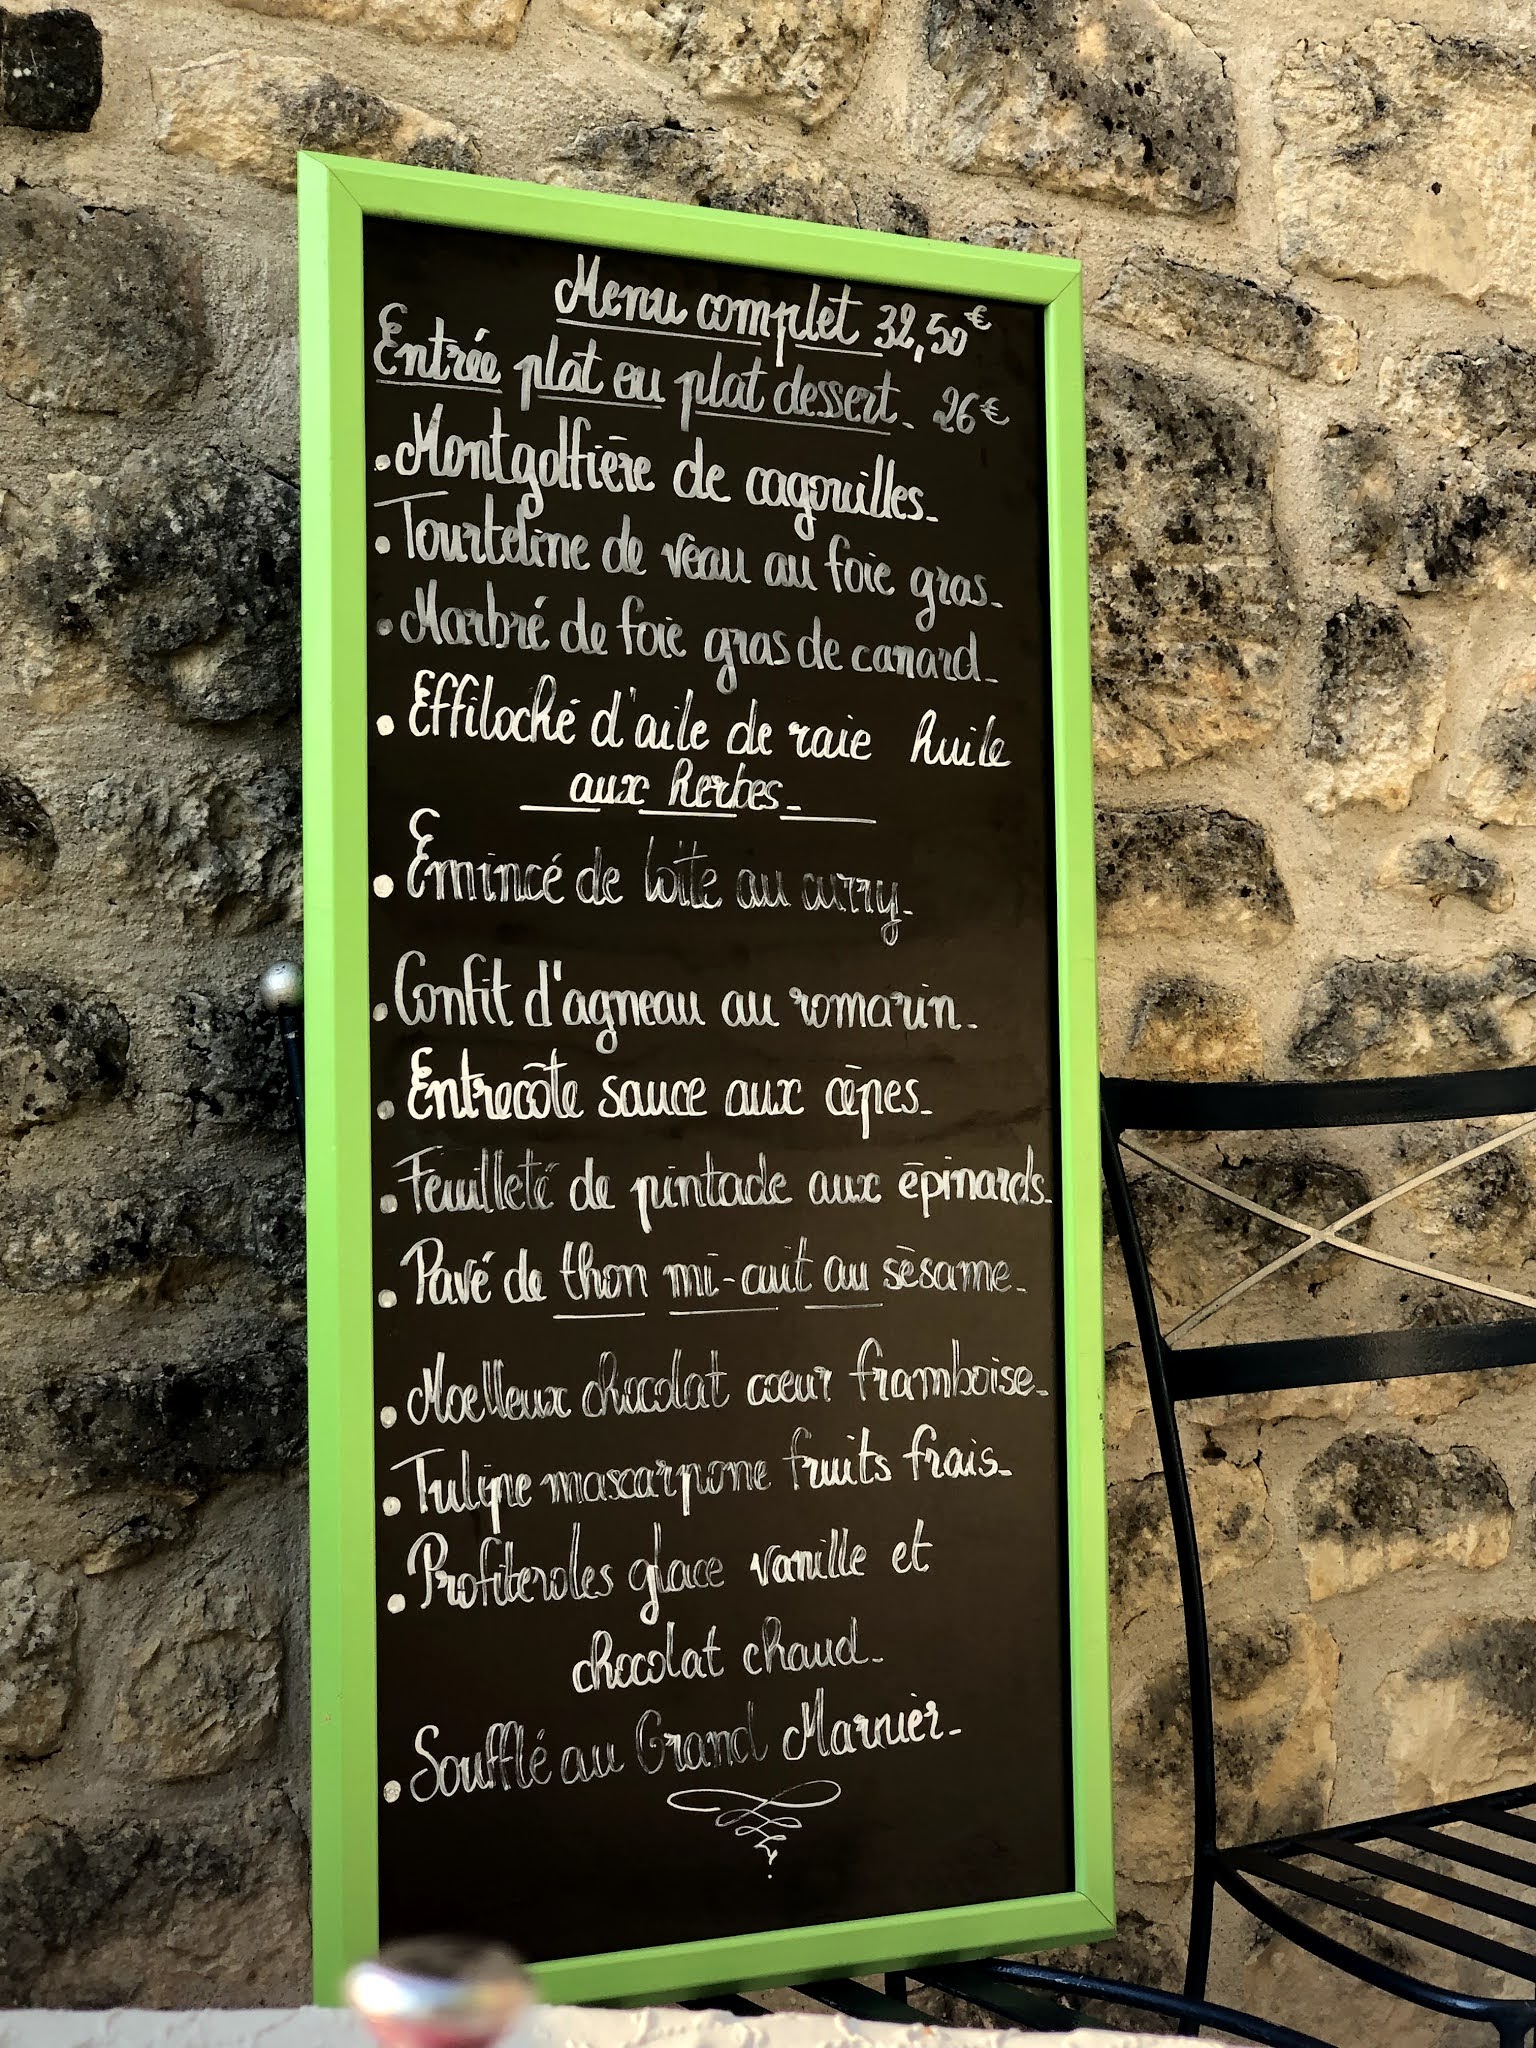 Menu complet 32,50€
Entrée plat ou plat dessert. 26€
• Montgolfière de cagouilles.
• Tourteline de veau au foie gras.
• Marbré de foie gras de canard.
• Effiloché d'aile de raie huile
aux herbes.
• Emincé de lotte au curry.
• Confit d'agneau au romarin.
• Entrecôte sauce aux cèpes.
• Feuilleté de pintade aux épinards.
• Pavé de thon mi-cuit au sésame.
• Moelleux chocolat coeur framboise.
• Tulipe mascarpone fruits frais.
• Profiteroles glace vanille et
chocolat chaud.
• Soufflé au Grand Marnier.